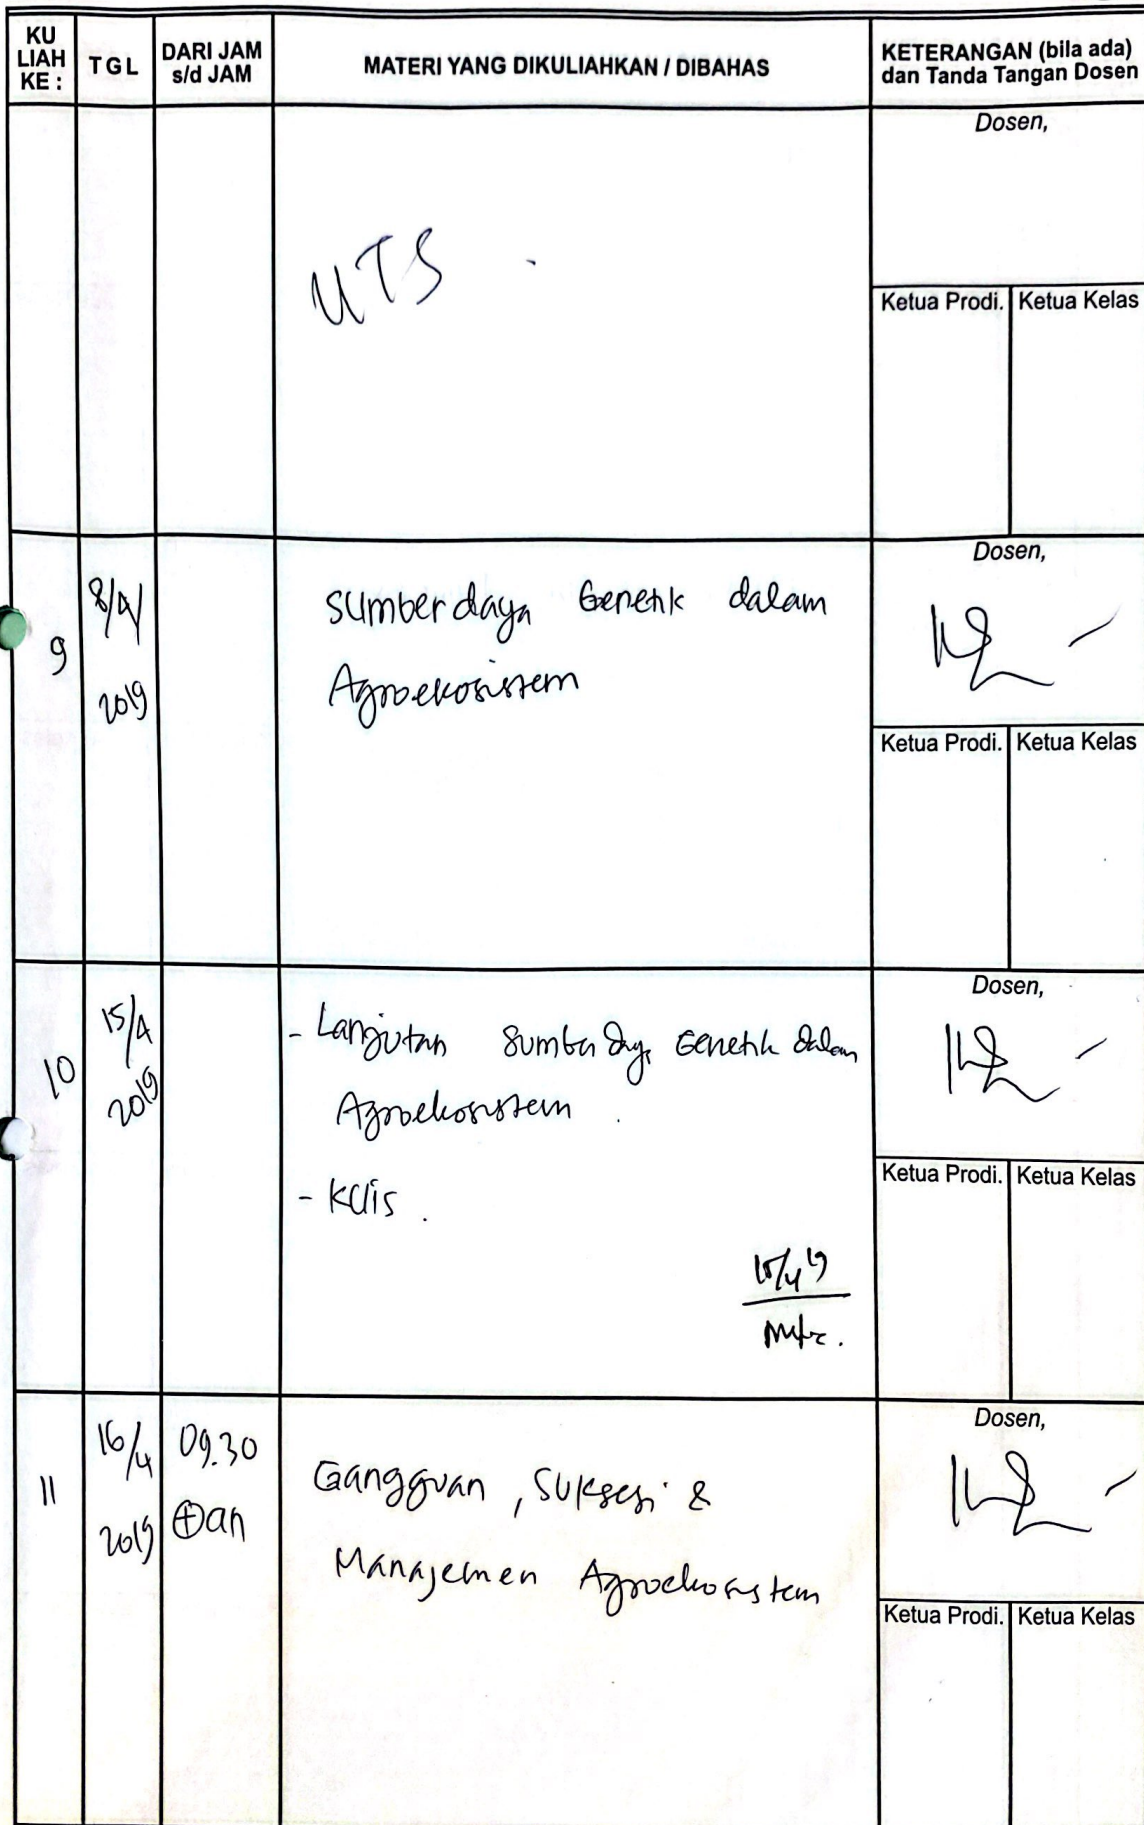 KU
LIAH
KE :
TGL
DARI JAM
s/d JAM
MATERI YANG DIKULIAHKAN / DIBAHAS
KETERANGAN (bila ada)
dan Tanda Tangan Dosen
UTS
Dosen,
Ketua Prodi. Ketua Kelas
9
8/4/
2019
Sumber daya Genetik dalam
Agroekosistem
Dosen,
Ketua Prodi. Ketua Kelas
10
15/4
2019
- Lanjutan Sumber Genetik dalam
Agroekosistem
- Kuis
15/4 19
Dosen,
Ketua Prodi. Ketua Kelas
11
16/4
2019
09.30
Gangguan, Suksesi &
Manajemen Agroekosistem
Dosen,
Ketua Prodi. Ketua Kelas